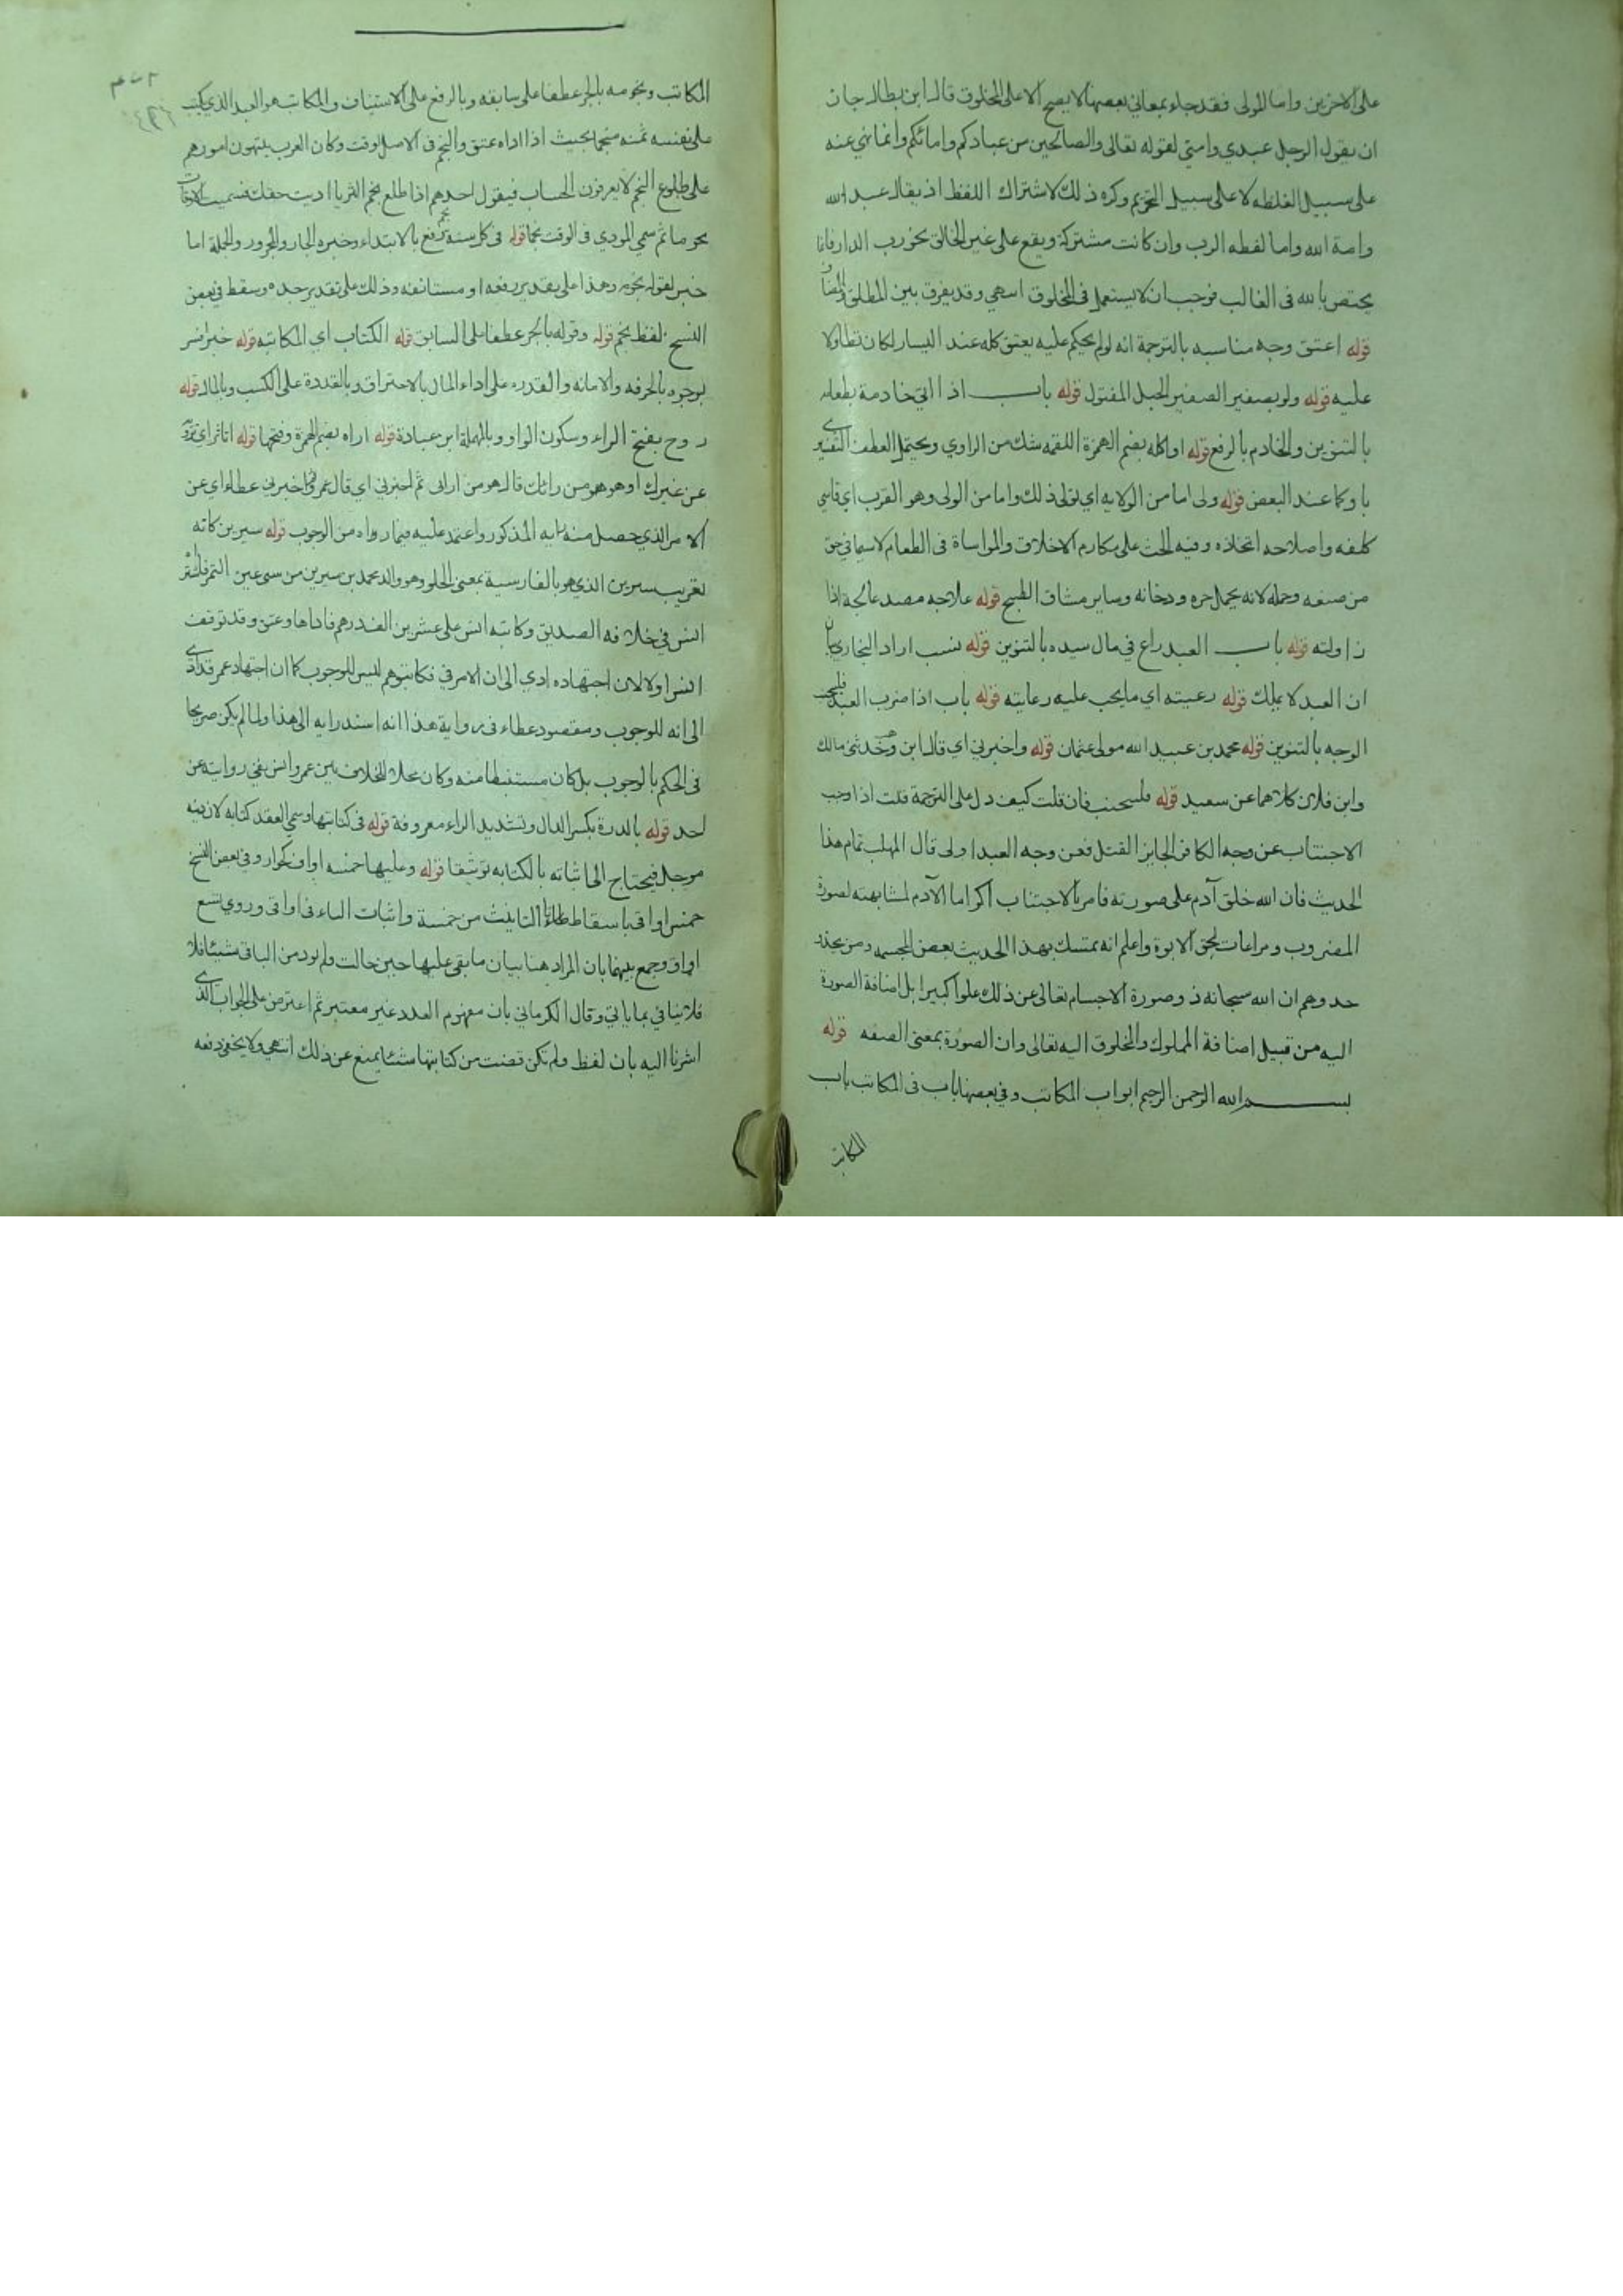 على الاخرين واما المولى فقد جاء بمعاني بعضها لا يصح الا على المخلوق قال ابن بطال جاز
ان يقول الرجل عبدي وامتي لقوله تعالى والصالحين من عبادكم وامائكم وانما نهي عنه
على سبيل الغلظه لا على سبيل التحريم وكره ذلك لاشتراك اللفظ اذ يقال عبد الله
وامة الله واما لفظه الرب وان كانت مشتركة ويقع على غير الخالق نحو رب الدار فانها
يختص بالله فى الغالب فوجب ان لا يستعمل فى المخلوق انتهى وقد يفرق بين المطلق والمضاف
قوله اعتق وجه مناسبه بالترجمة انه لو لم يحكم عليه بعتق كله عند اليسار لكان تطاولا
عليه قوله ولو بضفير الضفير الحبل المفتول قوله باب اذا اتي خادمة بطعامه
بالتنوين والخادم بالرفع قوله او اكله بضم الهمزة اللقمه شك من الراوي ويحتمل العطف التفسيري
باو كما عند البعض قوله ولى اما من الولايه اي تولى ذلك واما من الولى وهو القرب اي قاسي
كلفه واصلاحه اتخاذه وفيه الحث على مكارم الاخلاق والمواساة فى الطعام لاسيما في حق
من صنعه وحمله لانه يحمل حره ودخانه وساير مشاق الطبخ قوله علاجه مصدر عالجه اذا
زاولته قوله باب العبد راع في مال سيده بالتنوين قوله نسب اراد البخاري بيان
ان العبد لا يملك قوله رعيته اي ما يجب عليه رعايته قوله باب اذا ضرب العبد فليجتنب
الوجه بالتنوين قوله محمد بن عبيد الله مولى عثمان قوله واخبرني اي قال ابن وهب وحدثني مالك
وابن فلان كلاهما عن سعيد قوله فليجتنب فان قلت كيف دل على الترجمة قلت اذا وجب
الاجتناب عن وجه الكافر الجايز القتل فعن وجه العبد اولى قال المهلب تمام هذا
الحديث فان الله خلق آدم على صورته فامر بالاجتناب اكراما الآدم لمشابهته لصورة
المضروب ومراعات لحق الابوة واعلم انه تمسك بهذا الحديث بعض المجسمه ومن يحذو
حدوهم ان الله سبحانه ذو صورة الاجسام تعالى عن ذلك علوا كبيرا بل اضافة الصورة
اليه من قبيل اضافة المملوك والمخلوق اليه تعالى وان الصورة بمعنى الصفه قوله
بسم الله الرحمن الرحيم ابواب المكاتب وفي بعضها باب فى المكاتب باب
المكاتب
المكاتب ونجومه بالجر عطفا على سابقه وبالرفع على الاستيناف والمكاتب هو العبد الذي يكتب
على نفسه ثمنه منجما بحيث اذا اداه عتق والنجم فى الاصل الوقت وكان العرب يبنون امورهم
على طلوع النجم لا يعرفون الحساب فيقول احدهم اذا طلع نجم الثريا اديت حقك فسميت الاوقات
نجوما ثم سمي المودي فى الوقت نجما قوله فى كل سنة نجم برفع بالابتداء وخبره الجار والمجرور والجملة اما
خبر لقوله نجومه وهذا على تقدير رفعه او مستانفه وذلك على تقدير جره وسقط في بعض
النسخ لفظ نجم قوله وقوله بالجر عطفا على السابق قوله الكتاب اي المكاتبه قوله خيرا فسر
بوجوه بالحرفه والامانه والقدره على اداء المال بالاحتراف وبالقدرة على الكسب وبالمال قوله
روح بفتح الراء وسكون الواو وبالمهملة ابن عبادة قوله اراه بضم الهمزة وفتحها قوله اتاثر اي تروي
عن غيرك او هو من رائك قال هو من رائى ثم اخبرني اي قال عمرو ثم اخبرنى عطاء اي عن
الامر الذي حصل منه رايه المذكور واعتمد عليه فيما رواه من الوجوب قوله سيرين كانه
تعريب سيرين الذي هو بالفارسية بمعنى الحلو وهو والد محمد بن سيرين من سبي عين التمر فاشتراه
انس في خلافه الصديق وكاتبه انس على عشرين الف درهم فاداها وعتق وقد توقف
انس اولا لان اجتهاده ادي الى ان الامر في فكاتبوهم ليس للوجوب كما ان اجتهاد عمر قد ادي
الى انه للوجوب ومقصود عطاء فى رواية هذا انه استدرايه الى هذا ولما لم يكن صريحا
فى الحكم بالوجوب بل كان مستنبطا منه وكان محلا للخلاف بين عمر وانس نفي روايته عن
احد قوله بالدرة بكسر الدال وتشديد الراء معروفة قوله فى كتابتها وسمي العقد كتابه لان فيه
موجل فيحتاج الى اثباته بالكتابه توثيقا قوله وعليها خمسه اواق كجوار وفي بعض النسخ
خمس اواقى باسقاط تاء التانيث من خمسة واثبات الياء فى اواقى وروي تسع
اواق وجمع بينهما بان المراد هنا بيان ما بقى عليها حين حالت ولم تود من الباقى شيئا فلا
فلا ينافي بما ياتي وقال الكرماني بان مفهوم العدد غير معتبر ثم اعترض على الجواب الذي
اشرنا اليه بان لفظ ولم تكن قضت من كتابتها شئا يمنع عن ذلك انتهى ولا يخفى دفعه